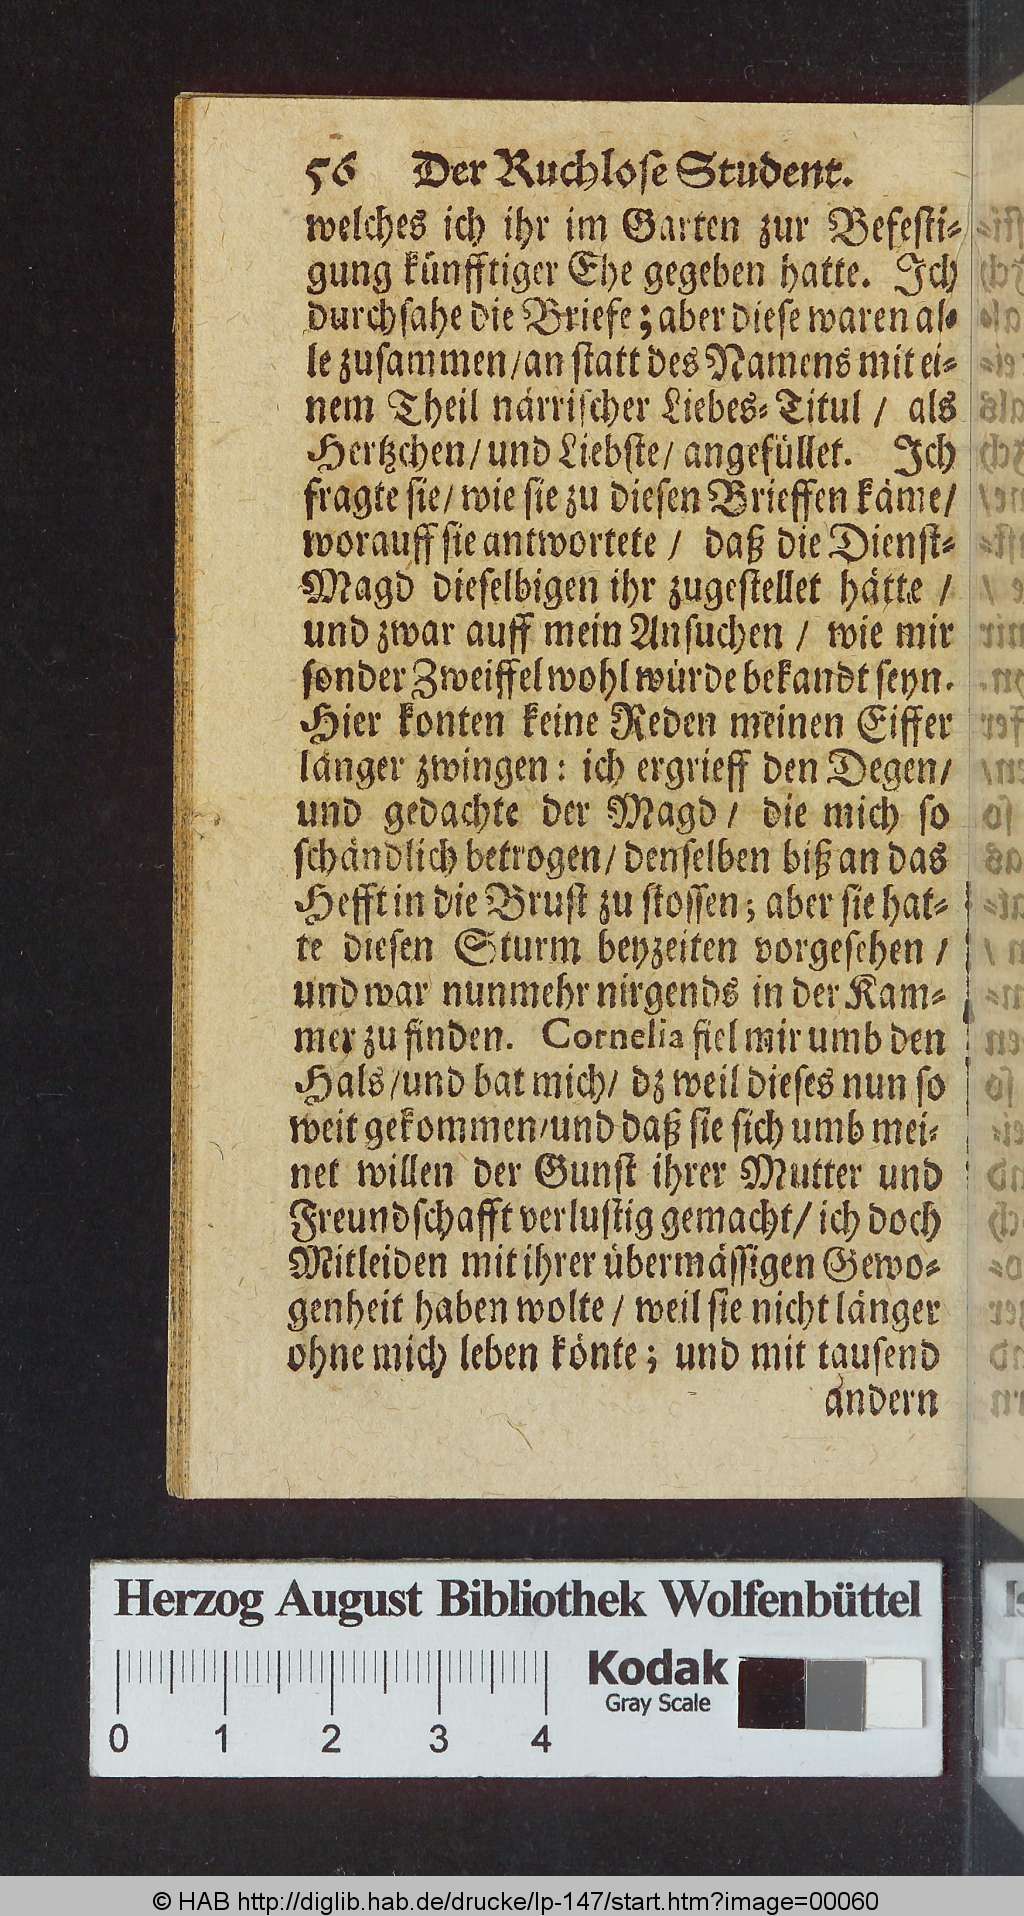 56 Der Ruchlose Student.
welches ich ihr im Garten zur Befesti-
gung künfftiger Ehe gegeben hatte. Ich
durchsahe die Briefe; aber diese waren al-
le zusammen/an statt des Namens mit ei-
nem Theil närrischer Liebes-Titul / als
Hertzchen/ und Liebste/ angefüllet. Ich
fragte sie/ wie sie zu diesen Brieffen käme/
worauff sie antwortete / daß die Dienst-
Magd dieselbigen ihr zugestellet hätte /
und zwar auff mein Ansuchen / wie mir
sonder Zweiffel wohl würde bekandt seyn.
Hier konten keine Reden meinen Eiffer
länger zwingen: ich ergrieff den Degen/
und gedachte der Magd / die mich so
schändlich betrogen/ denselben biß an das
Hefft in die Brust zu stossen; aber sie hat-
te diesen Sturm beyzeiten vorgesehen /
und war nunmehr nirgends in der Kam-
mer zu finden. Cornelia fiel mir umb den
Hals/und bat mich/ dz weil dieses nun so
weit gekommen/und daß sie sich umb mei-
net willen der Gunst ihrer Mutter und
Freundschafft verlustig gemacht/ ich doch
Mitleiden mit ihrer übermässigen Gewo-
genheit haben wolte / weil sie nicht länger
ohne mich leben könte; und mit tausend
andern
Herzog August Bibliothek Wolfenbüttel
Kodak
Gray Scale
0 1 2 3 4
© HAB http://diglib.hab.de/drucke/lp-147/start.htm?image=00060